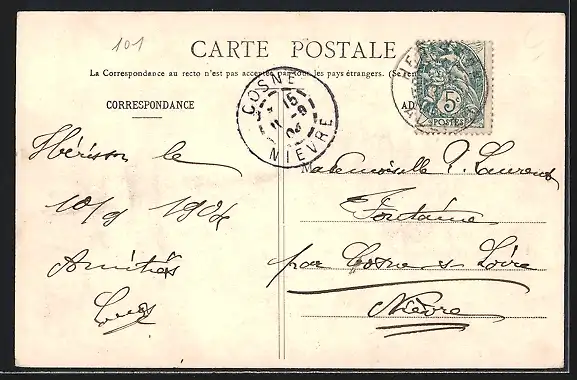 101
CARTE POSTALE
La Correspondance au recto n'est pas acceptée par tous les pays étrangers. (Se ren
CORRESPONDANCE
AD
COSNE
15
11 -9
04
NIÈVRE
5c
POSTES
Hérisson le
10/9 1904
Amitiés
Mademoiselle P. Laurent
Fontaine
par Cosne s/ Loire
Nièvre